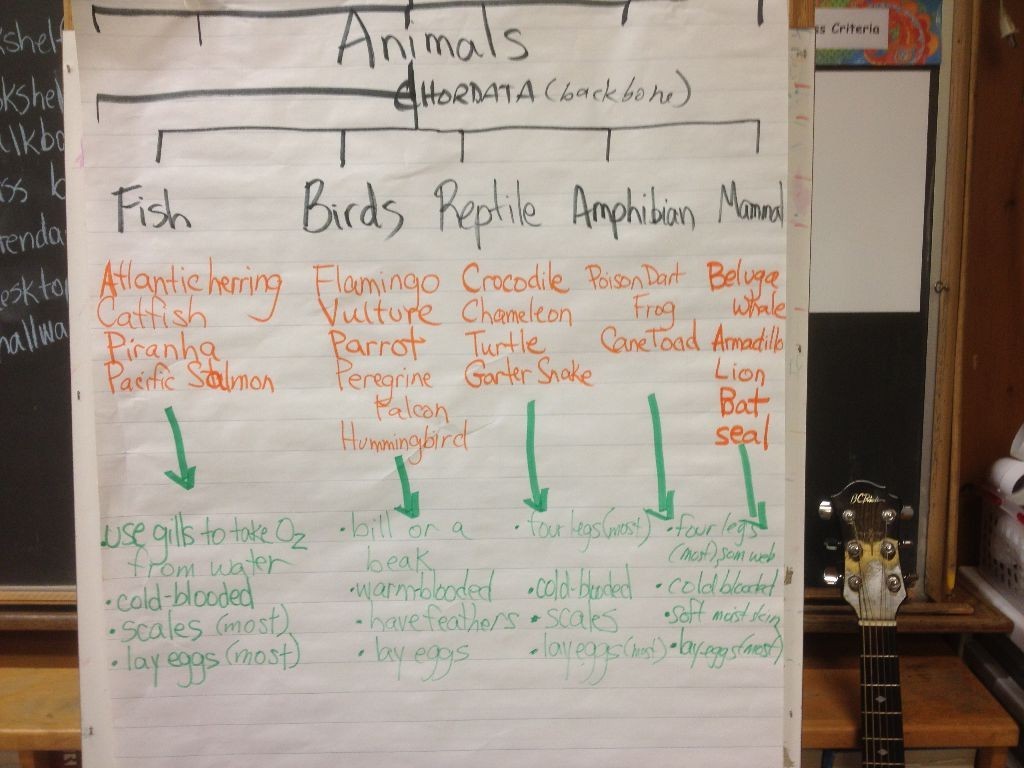 Criteria
Animals
CHORDATA (backbone)
Fish
Birds
Reptile
Amphibian
Mammal
Atlantic herring
Catfish
Piranha
Pacific Salmon
Flamingo
Vulture
Parrot
Peregrine
Falcon
Hummingbird
Crocodile
Chameleon
Turtle
Garter Snake
Poison Dart
Frog
Cane Toad
Beluga
Whale
Armadillo
Lion
Bat
seal
use gills to take O2
from water
• cold-blooded
• scales (most)
• lay eggs (most)
• bill or a
beak
• warm-blooded
• have feathers
• lay eggs
• four legs (most)
• cold-blooded
• scales
• lay eggs (most)
• four legs
(most), som web
• cold blooded
• soft moist skin
• lay eggs (most)